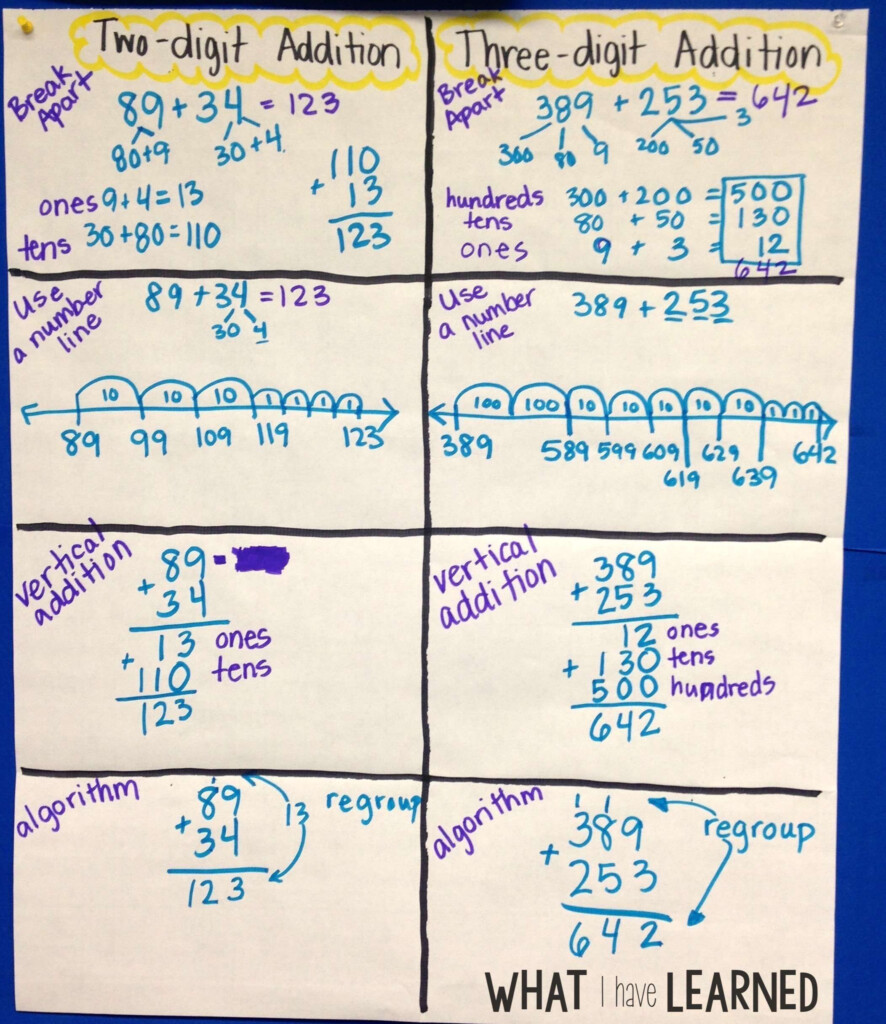 Two-digit Addition
Break Apart
89 + 34 = 123
80+9 30+4
ones 9+4=13
tens 30+80=110
110
+ 13
123
Three-digit Addition
Break Apart
389 + 253 = 642
300 80 9 200 50 3
hundreds 300 + 200 = 500
tens 80 + 50 = 130
ones 9 + 3 = 12
642
Use a number line
89 + 34 = 123
30 4
10 10 10 1 1 1 1
89 99 109 119 123
Use a number line
389 + 253
100 100 10 10 10 10 10 1 1 1
389 589 599 609 629 642
619 639
vertical addition
89 -
+ 34
+ 13 ones
110 tens
123
vertical addition
389
+ 253
12 ones
+ 130 tens
500 hundreds
642
algorithm
1
89 13 regroup
+ 34
123
algorithm
1 1
389 regroup
+ 253
642
WHAT I have LEARNED